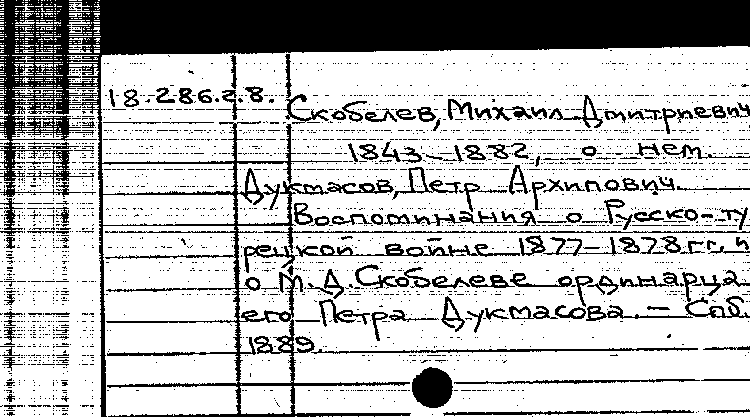 18.286.2.8.
Скобелев, Михаил Дмитриевич
1843-1882, о нем.
Дукмасов, Петр Архипович.
Воспоминания о Русско-ту
рецкой войне 1877-1878 гг. и
о М.Д. Скобелеве ординарца
его Петра Дукмасова. - Спб.
1889.